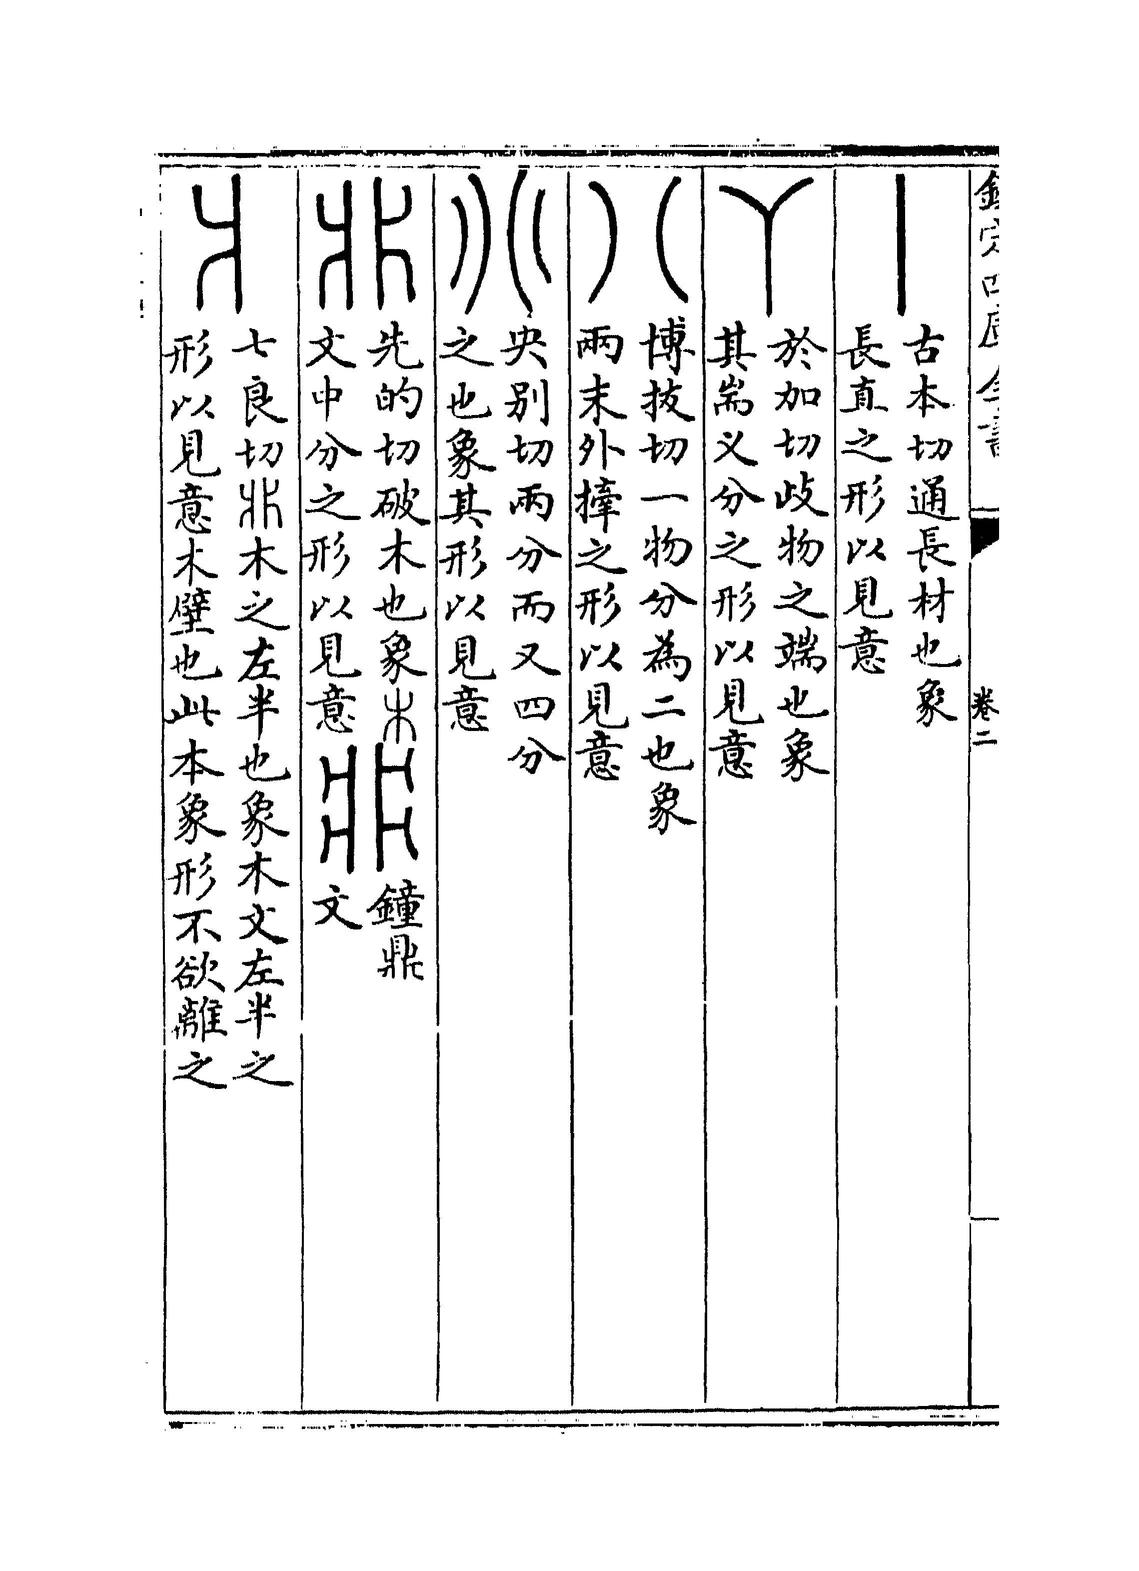 欽定四庫全書
卷二
丨
古本切通長材也象
長直之形以見意
丫
於加切歧物之端也象
其耑义分之形以見意
八
博拔切一物分為二也象
兩末外之形以見意
央别切兩分而又四分
之也象其形以見意
先的切破木也象木
文中分之形以見意
鐘鼎
文
爿
七良切木之左半也象木文左半之
形以見意木壁也此本象形不欲離之